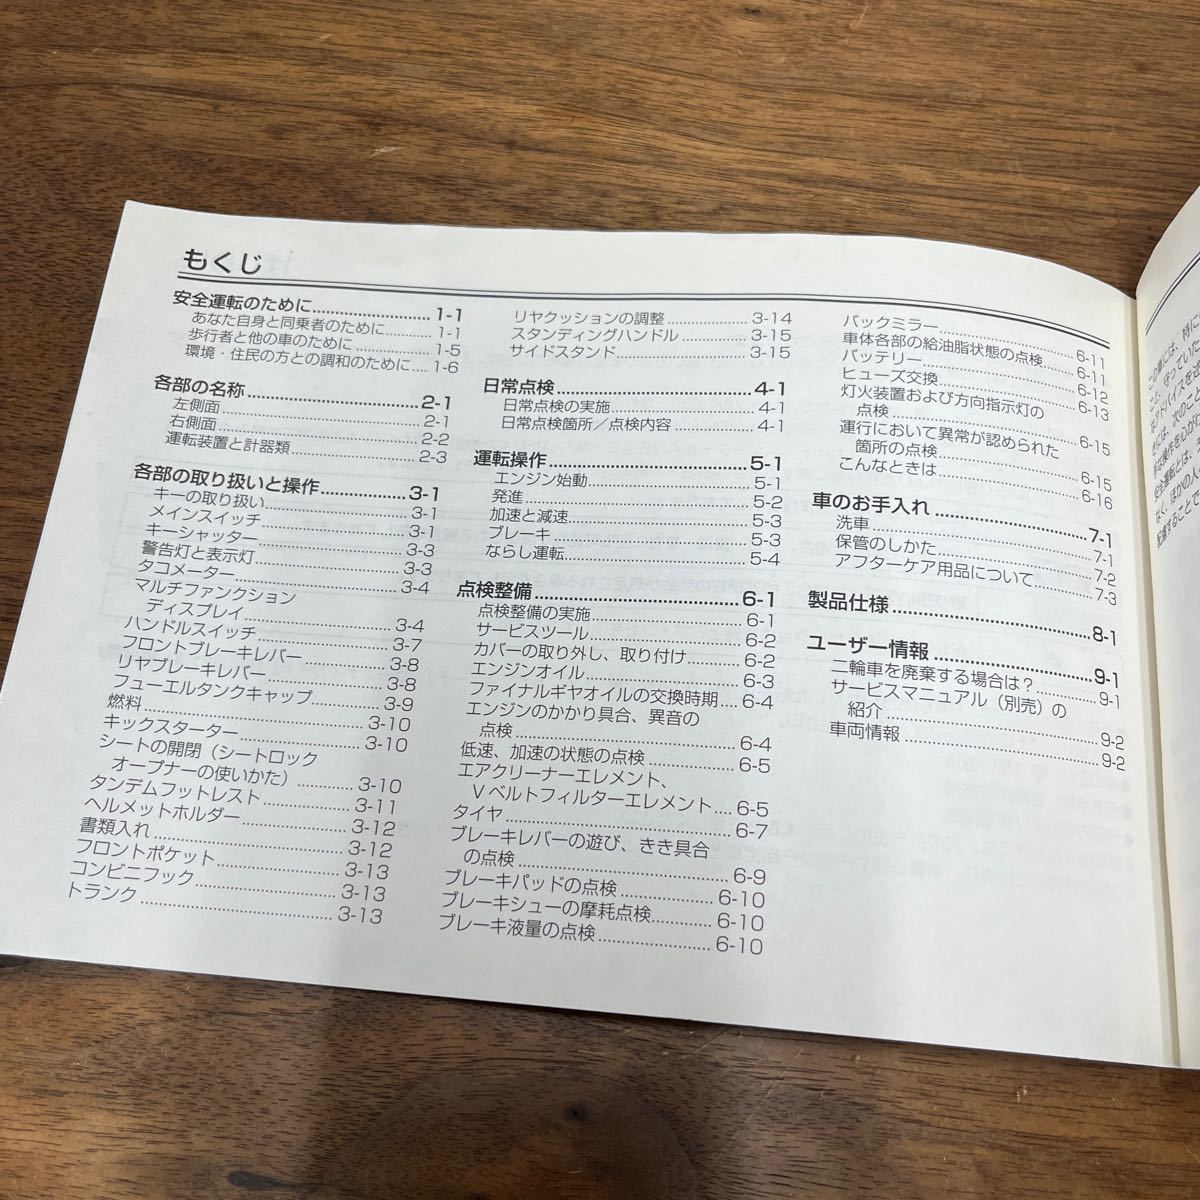 もくじ
安全運転のために 1-1
あなた自身と同乗者のために 1-1
歩行者と他の車のために 1-5
環境・住民の方との調和のために 1-6
各部の名称 2-1
左側面 2-1
右側面 2-2
運転装置と計器類 2-3
各部の取り扱いと操作 3-1
キーの取り扱い 3-1
メインスイッチ 3-1
キーシャッター 3-3
警告灯と表示灯 3-3
タコメーター 3-4
マルチファンクション
ディスプレイ 3-4
ハンドルスイッチ 3-7
フロントブレーキレバー 3-8
リヤブレーキレバー 3-8
フューエルタンクキャップ 3-9
燃料 3-10
キックスターター 3-10
シートの開閉（シートロック
オープナーの使いかた） 3-10
タンデムフットレスト 3-11
ヘルメットホルダー 3-12
書類入れ 3-12
フロントポケット 3-13
コンビニフック 3-13
トランク 3-13
リヤクッションの調整 3-14
スタンディングハンドル 3-15
サイドスタンド 3-15
日常点検 4-1
日常点検の実施 4-1
日常点検箇所／点検内容 4-1
運転操作 5-1
エンジン始動 5-1
発進 5-2
加速と減速 5-3
ブレーキ 5-3
ならし運転 5-4
点検整備 6-1
点検整備の実施 6-1
サービスツール 6-2
カバーの取り外し、取り付け 6-2
エンジンオイル 6-3
ファイナルギヤオイルの交換時期 6-4
エンジンのかかり具合、異音の
点検 6-4
低速、加速の状態の点検 6-5
エアクリーナーエレメント、
Ｖベルトフィルターエレメント 6-5
タイヤ 6-7
ブレーキレバーの遊び、きき具合
の点検 6-9
ブレーキパッドの点検 6-10
ブレーキシューの摩耗点検 6-10
ブレーキ液量の点検 6-10
バックミラー 6-11
車体各部の給油脂状態の点検 6-11
バッテリー 6-12
ヒューズ交換 6-13
灯火装置および方向指示灯の
点検 6-15
運行において異常が認められた
箇所の点検 6-15
こんなときは 6-16
車のお手入れ 7-1
洗車 7-1
保管のしかた 7-2
アフターケア用品について 7-3
製品仕様 8-1
ユーザー情報 9-1
二輪車を廃棄する場合は？ 9-1
サービスマニュアル（別売）の
紹介 9-2
車両情報 9-2